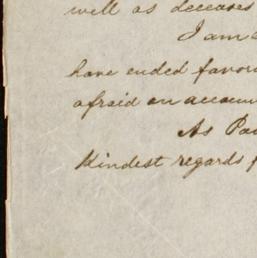 well as deceases
I am
have ended favor
afraid on accoun
As Pa
Kindest regards f